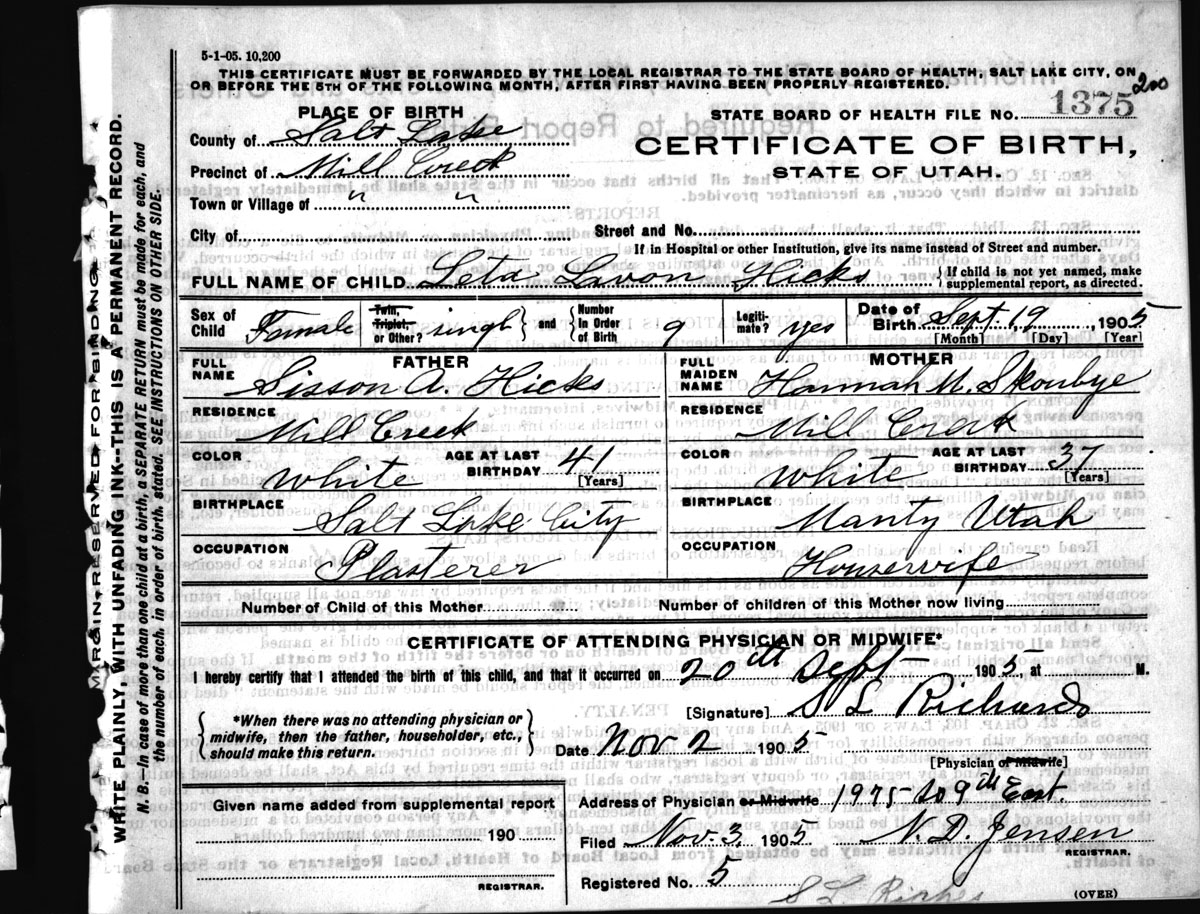 5-1-05. 10,200
THIS CERTIFICATE MUST BE FORWARDED BY THE LOCAL REGISTRAR TO THE STATE BOARD OF HEALTH, SALT LAKE CITY, ON
OR BEFORE THE 5TH OF THE FOLLOWING MONTH, AFTER FIRST HAVING BEEN PROPERLY REGISTERED.
200
PLACE OF BIRTH
STATE BOARD OF HEALTH FILE NO. 1375
County of Salt Lake
CERTIFICATE OF BIRTH,
Precinct of Mill Creek
STATE OF UTAH.
Town or Village of " "
City of Street and No.
If in Hospital or other Institution, give its name instead of Street and number.
FULL NAME OF CHILD Leta Lavon Hicks { If child is not yet named, make supplemental report, as directed.
Sex of Child Female Twin, Triplet, or Other? single } and { Number In Order of Birth 9 Legiti-mate? yes Date of Birth Sept 19 1905
[Month] [Day] [Year]
FATHER MOTHER
FULL NAME Sisson A. Hicks FULL MAIDEN NAME Hannah M. Skonbye
RESIDENCE Mill Creek RESIDENCE Mill Creek
COLOR White AGE AT LAST BIRTHDAY 41 [Years] COLOR White AGE AT LAST BIRTHDAY 37 [Years]
BIRTHPLACE Salt Lake City BIRTHPLACE Manty Utah
OCCUPATION Plasterer OCCUPATION Housewife
Number of Child of this Mother Number of children of this Mother now living
CERTIFICATE OF ATTENDING PHYSICIAN OR MIDWIFE*
I hereby certify that I attended the birth of this child, and that it occurred on 20th Sept 1905, at M.
[Signature] S L Richards
{ *When there was no attending physician or midwife, then the father, householder, etc., should make this return. }
Date Nov 2 1905
[Physician or Midwife]
Given name added from supplemental report
Address of Physician or Midwife 1975 So 9th East.
190
Filed Nov. 3 1905 N. D. Jensen
REGISTRAR.
Registered No. 5
REGISTRAR.
S L Riches
(OVER)
MARGIN RESERVED FOR BINDING
WRITE PLAINLY, WITH UNFADING INK--THIS IS A PERMANENT RECORD.
N. B.—In case of more than one child at a birth, a SEPARATE RETURN must be made for each, and
the number of each, in order of birth, stated. SEE INSTRUCTIONS ON OTHER SIDE.